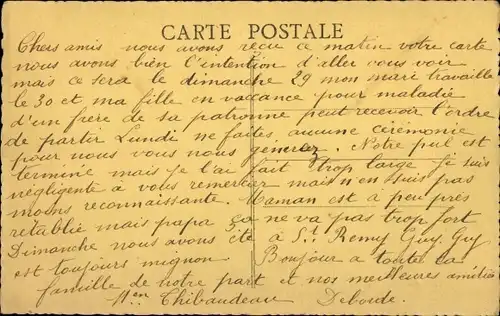 CARTE POSTALE
Chers amis nous avons reçu ce matin votre carte
nous avons bien l'intention d'aller vous voir
mais ce sera le dimanche 29 mon mari travaille
le 30 et ma fille en vacance pour maladie
d'un frère de sa patronne peut recevoir l'ordre
de partir Lundi ne faites aucune cérémonie
pour nous vous nous génerez. Notre pul est
terminé mais je l'ai fait trop large je suis
négligente à vous remercier mais n'en suis pas
moins reconnaissante. Maman est a peu près
retablie mais papa ça ne va pas trop fort
Dimanche nous avons été à St Remy Guy. Guy
est toujours mignon. Bonjour a toute la
famille de notre part et nos meilleures amitiés
Thibaudeau Deborde.